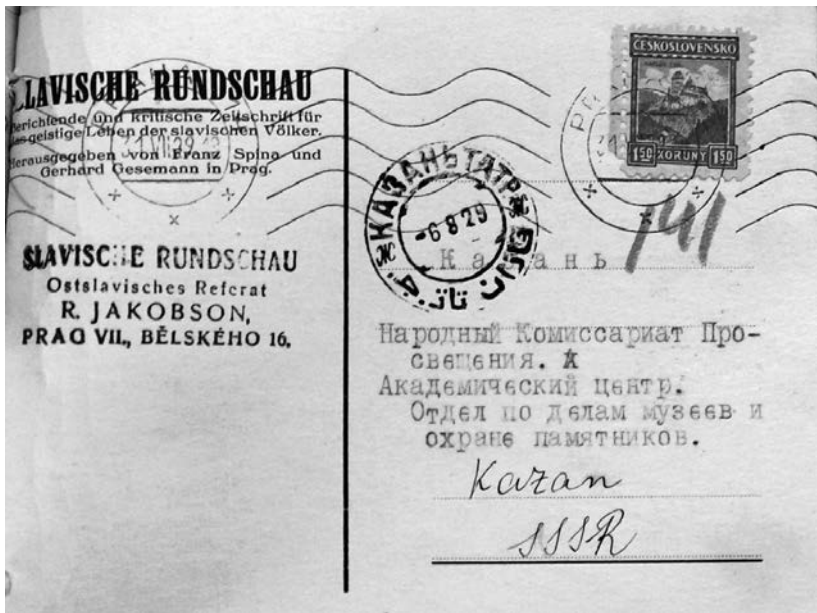 SLAVISCHE RUNDSCHAU
Berichtende und kritische Zeitschrift für
das geistige Leben der slavischen Völker.
Herausgegeben von Franz Spina und
Gerhard Gesemann in Prag.
SLAVISCHE RUNDSCHAU
Ostslavisches Referat
R. JAKOBSON,
PRAG VII., BĚLSKÉHO 16.
ČESKOSLOVENSKO
150 KORUNY 150
КАЗАНЬ ТАТР
-6 8 29
قازان تاتر
141
Казань
Народный Комиссариат Про-
свещения.
Академический центр.
Отдел по делам музеев и
охране памятников.
Kazan
SSSR